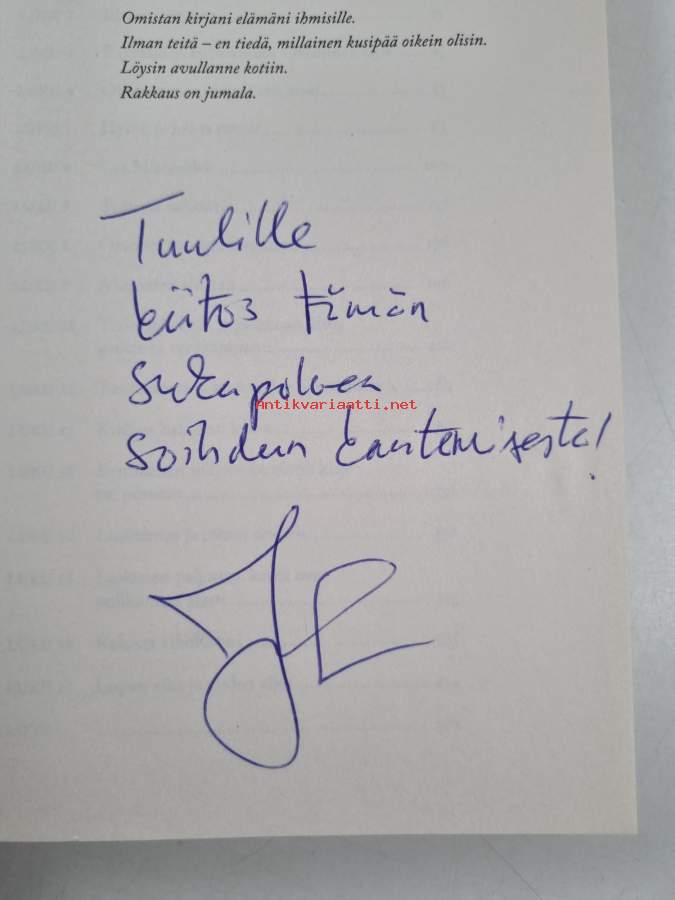 Omistan kirjani elämäni ihmisille.
Ilman teitä – en tiedä, millainen kusipää oikein olisin.
Löysin avullanne kotiin.
Rakkaus on jumala.
Tuulille
kiitos tämän
sukupolven
Antikvariaatti.net
soihdun kantamisesta!